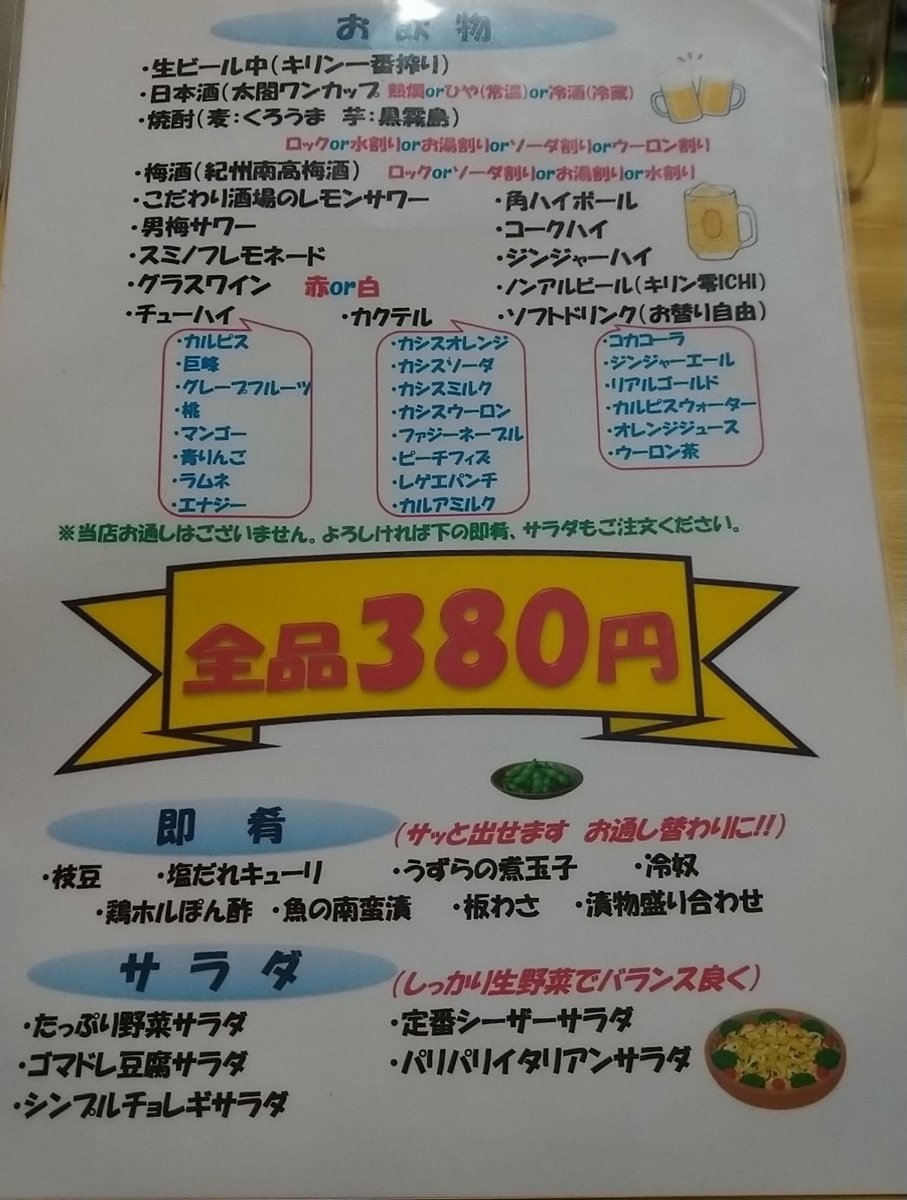 お飲物
・生ビール中(キリン一番搾り)
・日本酒(太閤ワンカップ 熱燗orひや(常温)or冷酒(冷蔵)
・焼酎(麦:くろうま 芋:黒霧島)
ロックor水割りorお湯割りorソーダ割りorウーロン割り
・梅酒(紀州南高梅酒) ロックorソーダ割りorお湯割りor水割り
・こだわり酒場のレモンサワー ・角ハイボール
・男梅サワー ・コークハイ
・スミノフレモネード ・ジンジャーハイ
・グラスワイン 赤or白 ・ノンアルビール(キリン零ICHI)
・チューハイ ・カクテル ・ソフトドリンク(お替り自由)
・カルピス
・巨峰
・グレープフルーツ
・桃
・マンゴー
・青りんご
・ラムネ
・エナジー
・カシスオレンジ
・カシスソーダ
・カシスミルク
・カシスウーロン
・ファジーネーブル
・ピーチフィズ
・レゲエパンチ
・カルアミルク
・コカコーラ
・ジンジャーエール
・リアルゴールド
・カルピスウォーター
・オレンジジュース
・ウーロン茶
※当店お通しはございません。よろしければ下の即肴、サラダもご注文ください。
全品380円
即肴 (サッと出せます お通し替わりに!!)
・枝豆 ・塩だれキューリ ・うずらの煮玉子 ・冷奴
・鶏ホルぽん酢 ・魚の南蛮漬 ・板わさ ・漬物盛り合わせ
サラダ (しっかり生野菜でバランス良く)
・たっぷり野菜サラダ ・定番シーザーサラダ
・ゴマドレ豆腐サラダ ・パリパリイタリアンサラダ
・シンプルチョレギサラダ